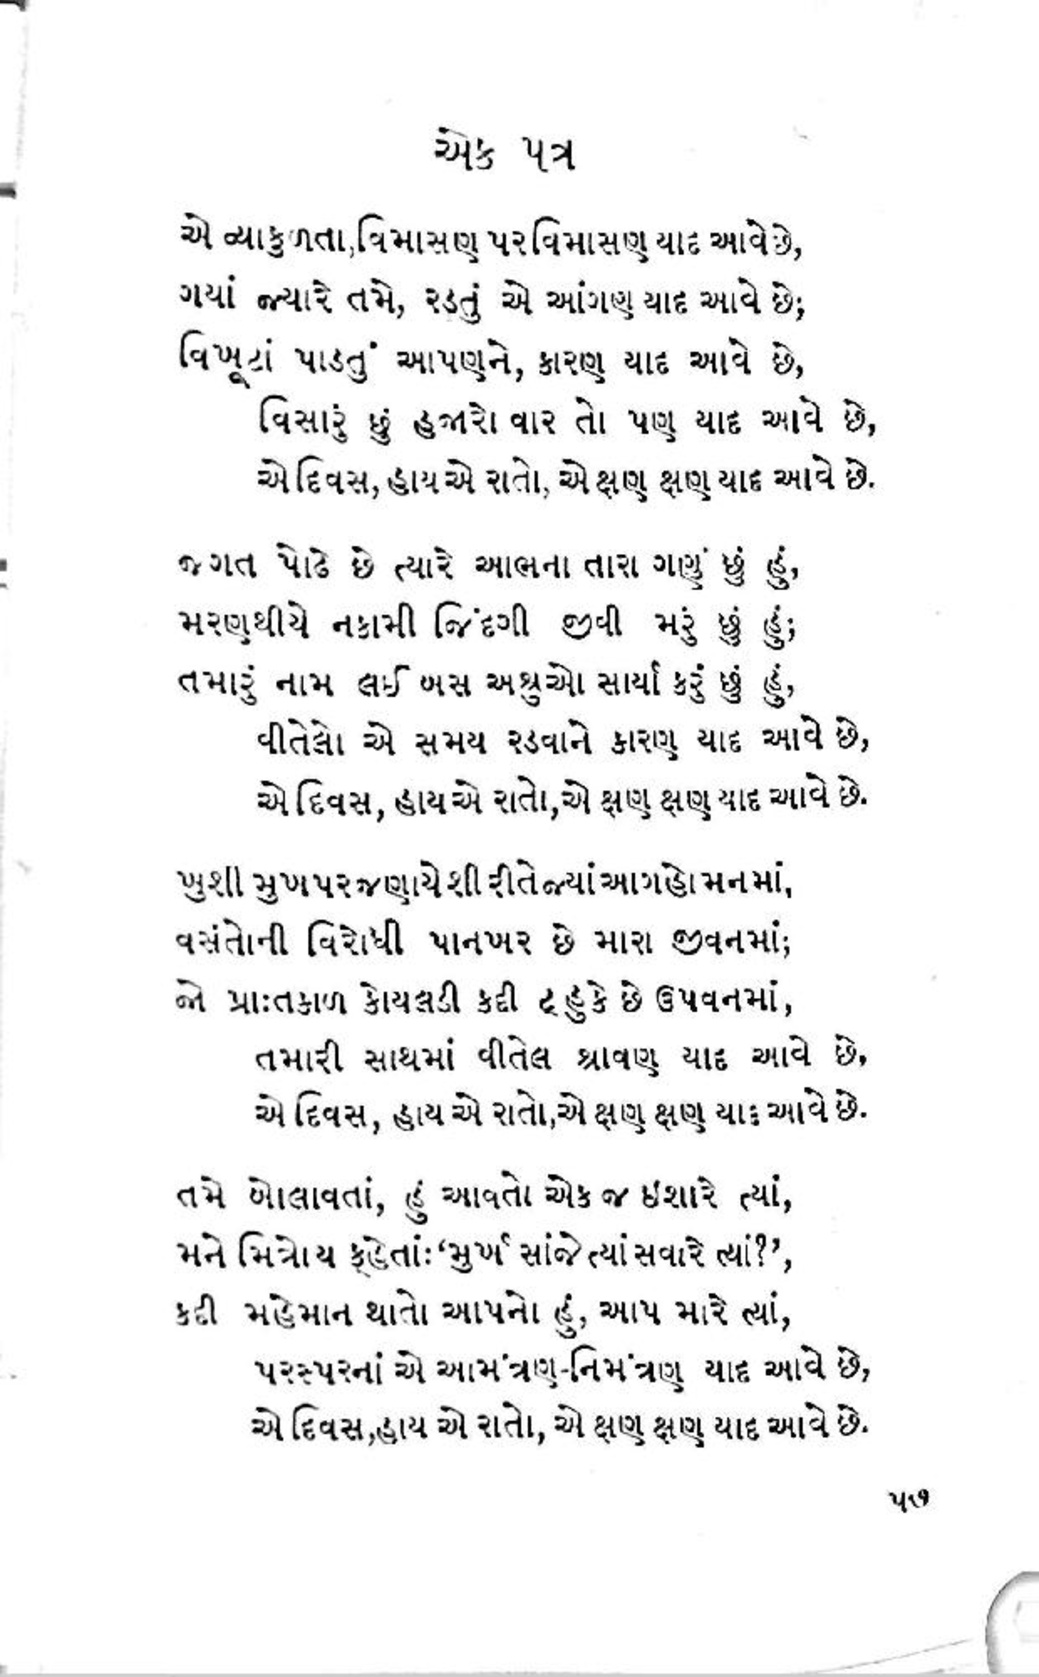 એક પત્ર
એ વ્યાકુળતા, વિમાસણ પર વિમાસણ યાદ આવે છે,
ગયાં જ્યારે તમે, રડતું એ આંગણ યાદ આવે છે;
વિખૂટાં પાડતું આપણને, કારણ યાદ આવે છે,
વિસારું છું હજારો વાર તો પણ યાદ આવે છે,
એ દિવસ, હાય એ રાતો, એ ક્ષણ ક્ષણ યાદ આવે છે.
જગત પોઢે છે ત્યારે આભના તારા ગણું છું હું,
મરણથીયે નકામી જિંદગી જીવી મરું છું હું;
તમારું નામ લઈ બસ અશ્રુઓ સાર્યા કરું છું હું,
વીતેલો એ સમય રડવાને કારણ યાદ આવે છે,
એ દિવસ, હાય એ રાતો, એ ક્ષણ ક્ષણ યાદ આવે છે.
ખુશી મુખ પર જણાયે શી રીતે જ્યાં આગ હો મનમાં,
વસંતોની વિરોધી પાનખર છે મારા જીવનમાં;
જો પ્રાઃતકાળ કોયલડી કદી ટહુકે છે ઉપવનમાં,
તમારી સાથમાં વીતેલ શ્રાવણ યાદ આવે છે,
એ દિવસ, હાય એ રાતો, એ ક્ષણ ક્ષણ યાદ આવે છે.
તમે બોલાવતાં, હું આવતો એક જ ઇશારે ત્યાં,
મને મિત્રોય ક્હેતાંઃ ‘મુર્ખ સાંજે ત્યાં સવારે ત્યાં?’,
કદી મહેમાન થાતો આપનો હું, આપ મારે ત્યાં,
પરસ્પરનાં એ આમંત્રણ-નિમંત્રણ યાદ આવે છે,
એ દિવસ, હાય એ રાતો, એ ક્ષણ ક્ષણ યાદ આવે છે.
૫૭